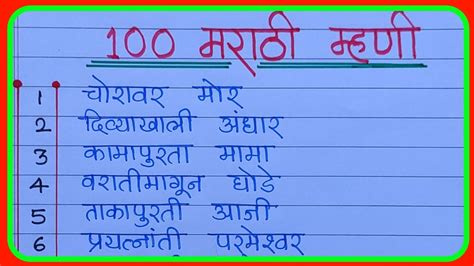 100 मराठी म्हणी
1 चोरावर मोर
2 दिव्याखाली अंधार
3 कामापुरता मामा
4 वरातीमागून घोडे
5 ताकापुरती आजी
6 प्रयत्नांती परमेश्वर